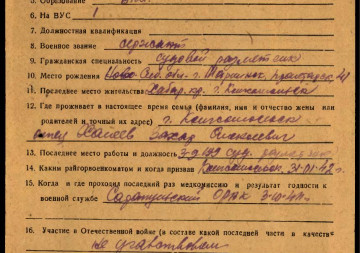 5. Образование
6. На ВУС 1
7. Должностная квалификация
8. Военное звание сержант
9. Гражданская специальность судовой разметчик
10. Место рождения Ново-Сиб. обл. г. Мариинск,
11. Последнее место жительства Хабар. кр. г. Комсомольск
12. Где проживает в настоящее время семья (фамилия, имя и отчество жены или
родителей и точный их адрес) г. Комсомольск
отец Хапеев Захар
13. Последнее место работы и должность З-д 199 суд. разметчик
14. Каким райгорвоенкоматом и когда призван Комсомольск. 31-01-42 г.
15. Когда и где проходил последний раз медкомиссию и результат годности к
военной службе 3-10-44
16. Участие в Отечественной войне (в составе какой последней части и в качеств
не участвовал